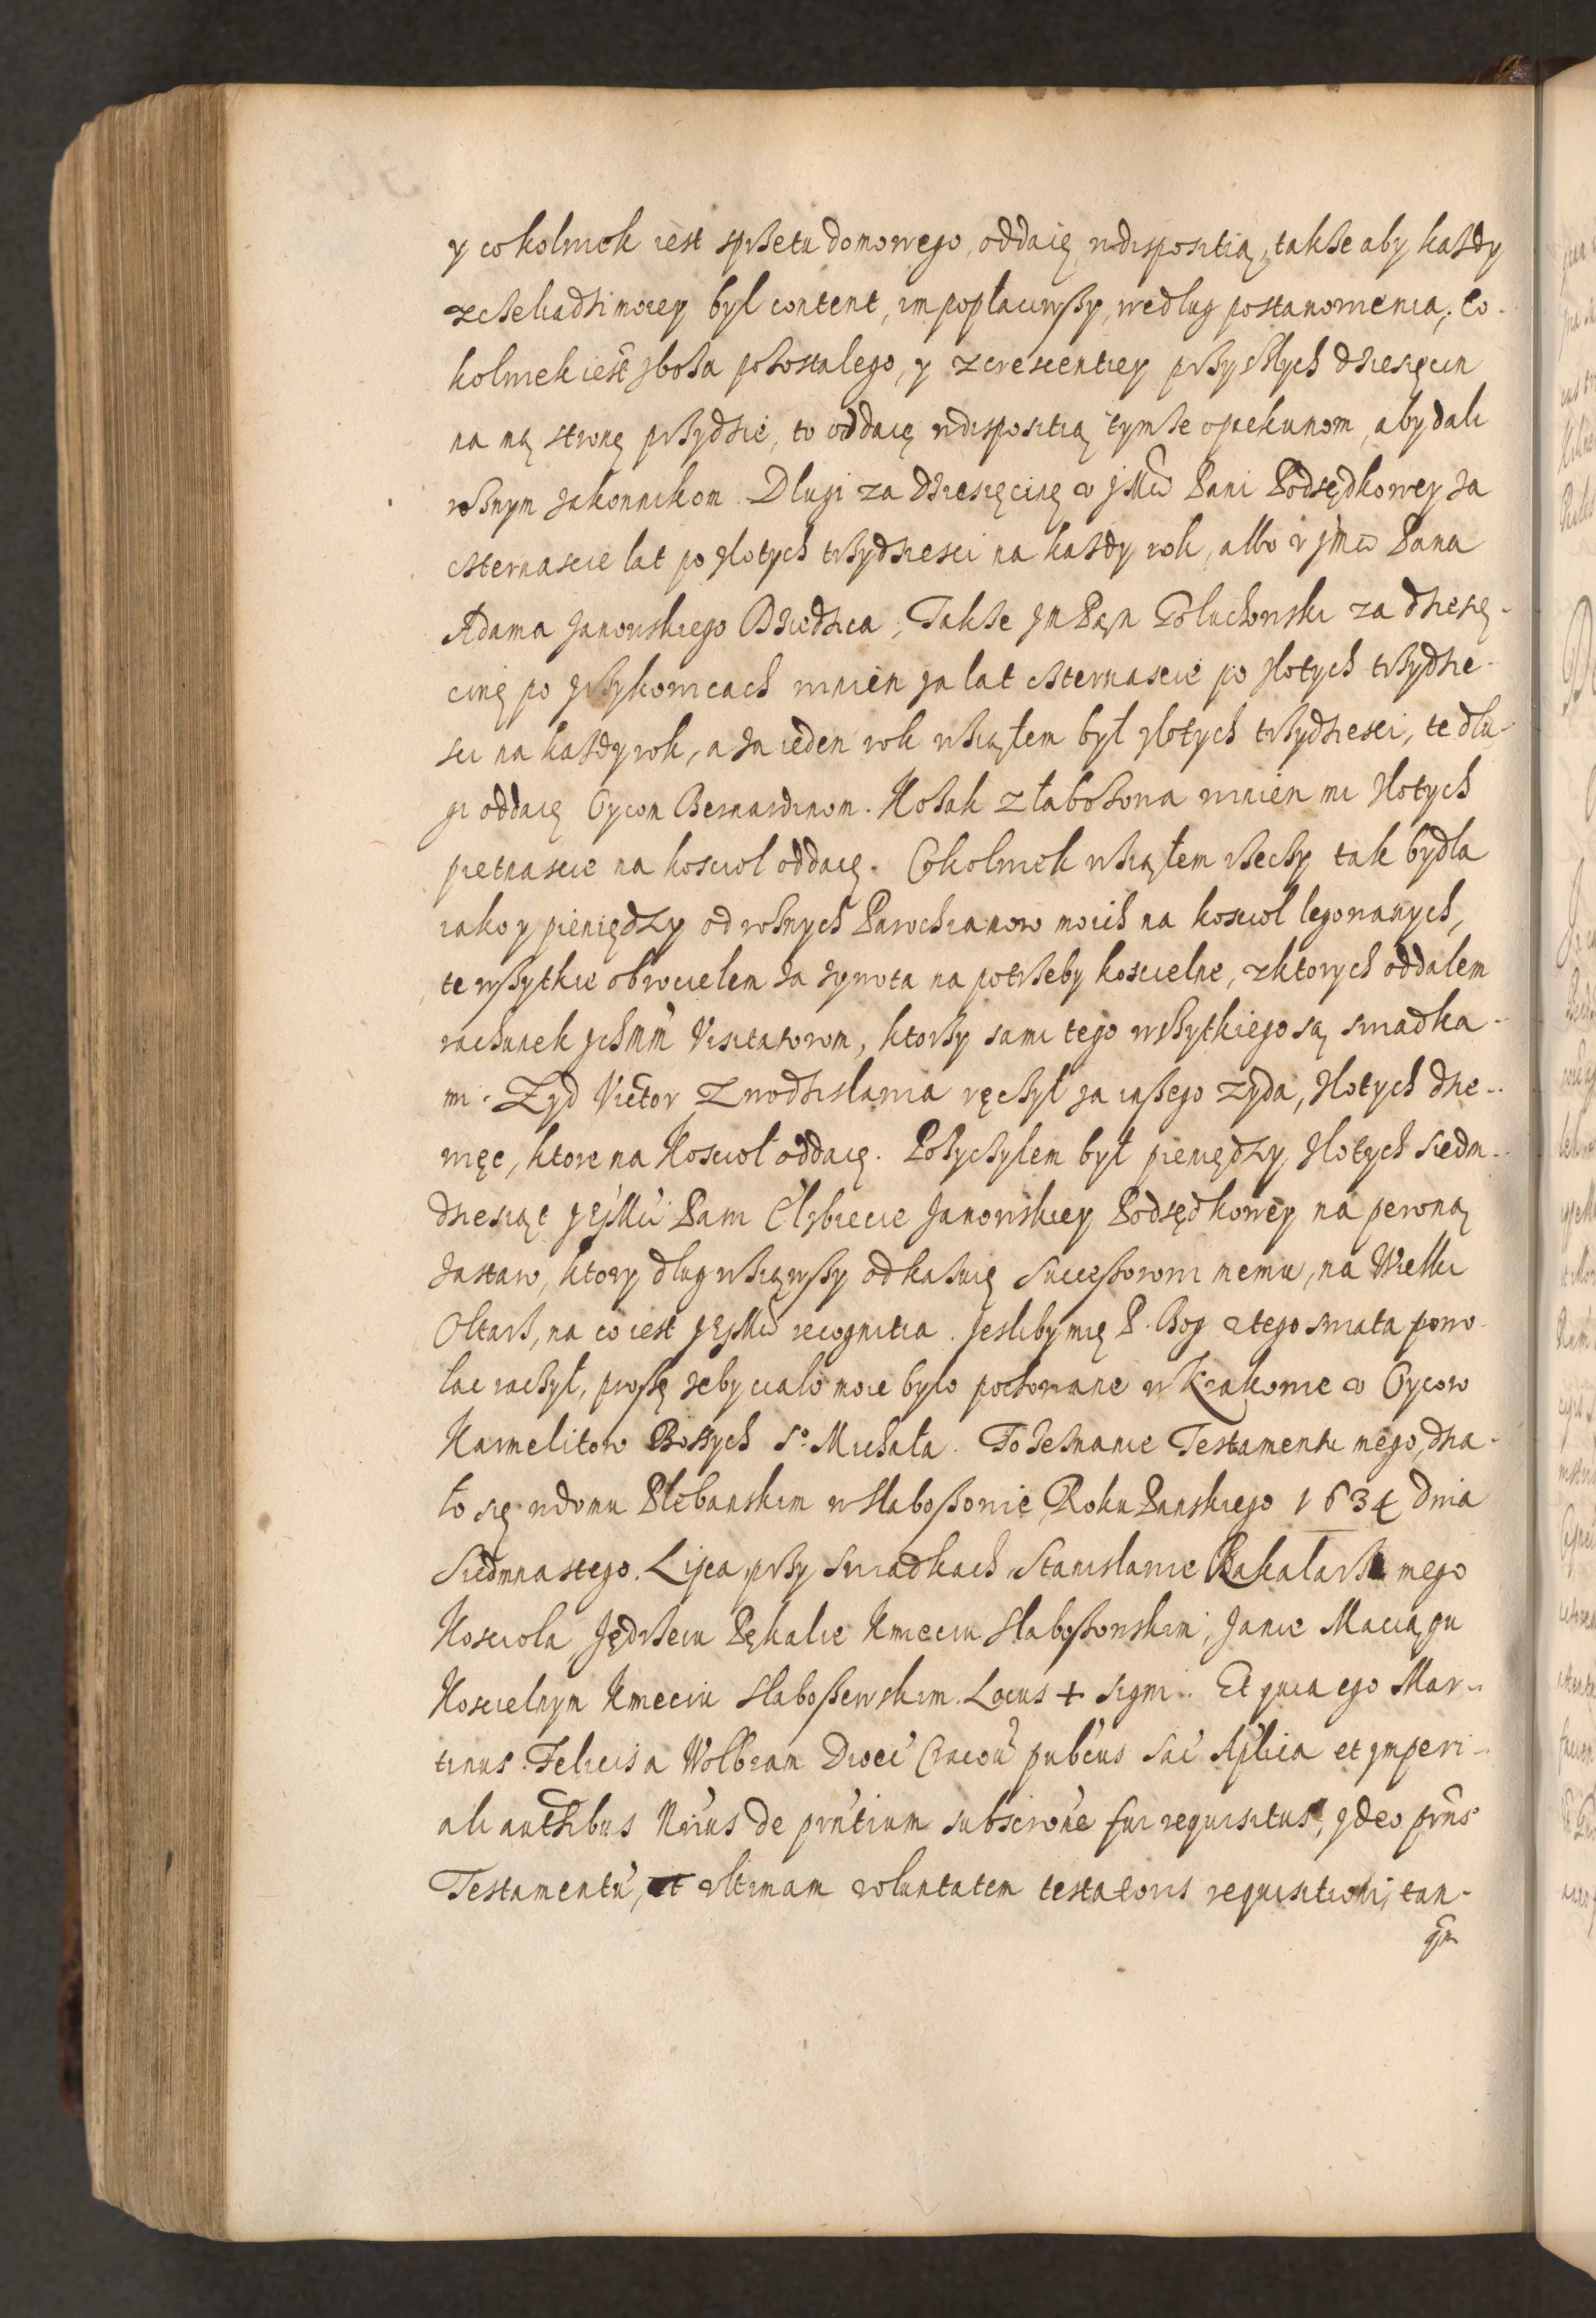 y cokolwiek iest sprzetu domowego, oddaię w dispositią, takze aby każdy
z czeliadzi moiey był content, im popłaciwszy, według postanowienia; Co-
kolwiek iest zboza pozostałego, y z crescentiey przyszłych dziesięcin
na mą stronę przydzie, to oddaię w dispositią tymze opiekunom, aby dali
roznym zakonnikom. Długi za dziesięcinę v JMci Pani Podsędkowey za
czternascie lat po złotych trzydziesci na kazdy rok, albo v JMci Pana
Adama Janowskiego Dziedzica, Takze JM Pan Głuchowski za dziesię-
cinę po przykowcach winien za lat czternascie po złotych trzydzie-
sci na kazdy rok, a za ieden rok wziąłem był złotych trzydziesci, te dłu-
gi oddaię Oycom Bernardinom. Kozak z łabozowa winien mi złotych
pietnascie na kosciol oddaię. Cokolwiek wziąłem rzeczy tak bydła
iako y pieniędzy od roznych Parochianow moich na kosciol legowanych,
te wszytkie obrocielem za zywota na potrzeby koscielne, z ktorych oddalem
rachunek JchMM Visitatorom, ktorzy sami tego wszytkiego są swiadka-
mi. Zyd Victor z wodzisławia ręczył za inszego zyda, złotych dzie-
więc, ktore na Kosciol oddaię. Pozyczylem był pieniędzy złotych siedm-
dziesiąt JejMci Pani Elzbiecie Janowskiey Podsędkowey na pewną
zastaw, ktory dług wziąwszy odkazuię Successorowi memu, na Wielki
Ołtarz, na co iest JejMci recognitia. Jesliby mię P. Bog z tego swiata powo-
łac raczył, proszę zeby ciało moie było pochowane w Krakowie v Oycow
Karmelitow Bossych So. Michała. To zeznanie Testamentu mego, dzia-
ło się w domu Plebanskim w Słaboszowie, Roku Panskiego 1634 dnia
Siedmnastego Lipca, przy swiadkach Stanisławie Bakalarzu mego
Kosciola, Jędrzeiu Pękalie Kmieciu Słaboszowskim, Janie Maciągu
Koscielnym Kmieciu Słaboszewskim. Locus + signi. Et quia ego Mar-
tinus Felicis a Wolbram Dioeci Cracou publcus Sac Aplica et Jmperi-
ali authibus Nrius de pñtium subscrone fui requisitus, Jdeo pñs
Testamentũ, et vltimam voluntatem testatoris requisitioni, tan-
qm